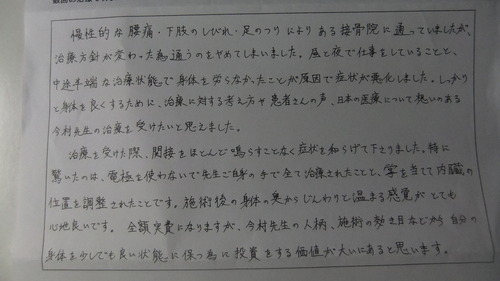 慢性的な腰痛・下肢のしびれ・足のつりによりある接骨院に通っていましたが、
治療方針が変わった為通うのをやめてしまいました。昼と夜で仕事をしていることと、
中途半端な治療状態で身体を労らなかったことが原因で症状が悪化しました。しっかり
と身体を良くするために、治療に対する考え方や患者さんの声、日本の医療について想いのある
今村先生の治療を受けたいと思えました。
治療を受けた際、関接をほとんど鳴らすことなく症状を和らげて下さりました。特に
驚いたのは、電極を使わないで先生ご自身の手で全て治療されたことと、掌を当てて内臓の
位置を調整されたことです。施術後の身体の奥からじんわりと温まる感覚がとても
心地良いです。全額実費になりますが、今村先生の人柄、施術の効き目などから自分の
身体を少しでも良い状態に保つ為に投資をする価値が大いにあると思います。